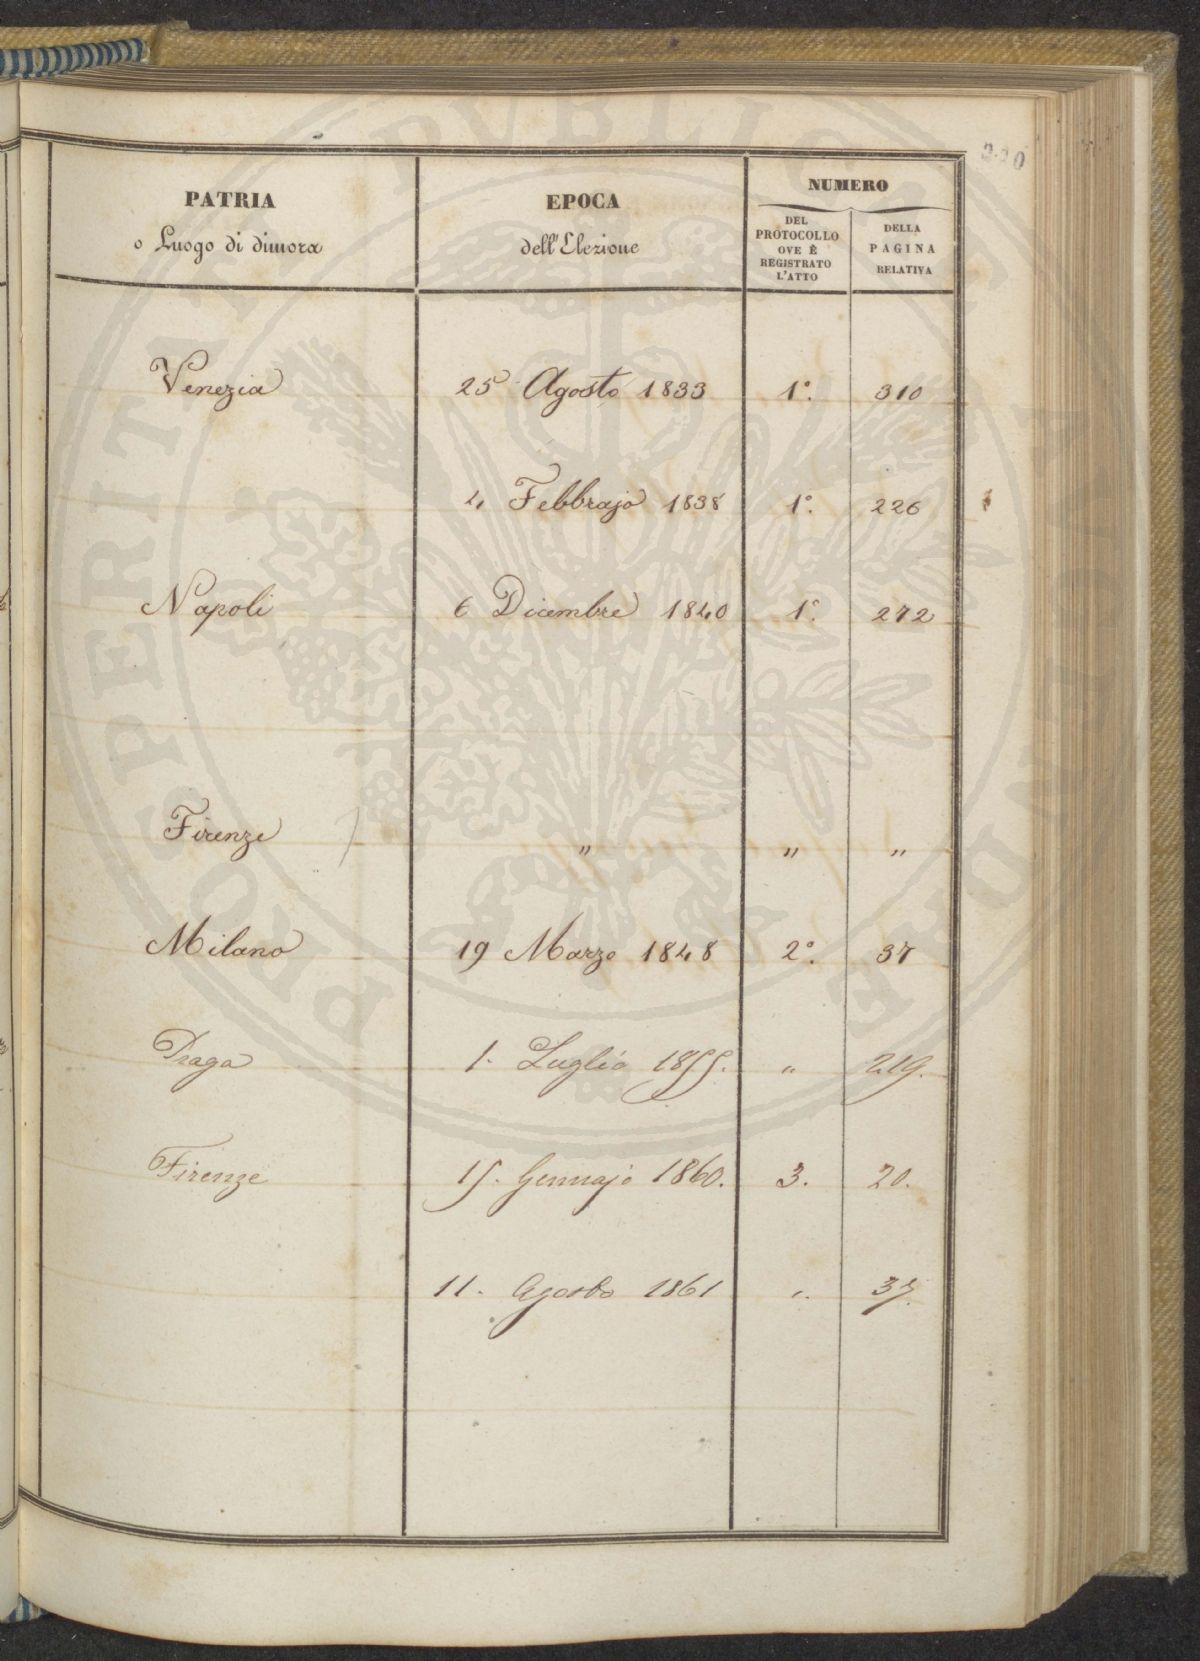 220
PATRIA
o Luogo di dimora
EPOCA
dell'Elezione
NUMERO
DEL
PROTOCOLLO
OVE È
REGISTRATO
L'ATTO
DELLA
PAGINA
RELATIVA
Venezia 25 Agosto 1833 1°. 310
4 Febbrajo 1838 1°. 226
Napoli 6 Dicembre 1840 1°. 272
Firenze " " "
Milano 19 Marzo 1848 2°. 37
Praga 1. Luglio 1855. " 219.
Firenze 15. Gennajo 1860. 3. 20.
11. Agosto 1861 " 37.
PROSPERITATI PUBLICAE AUGENDAE